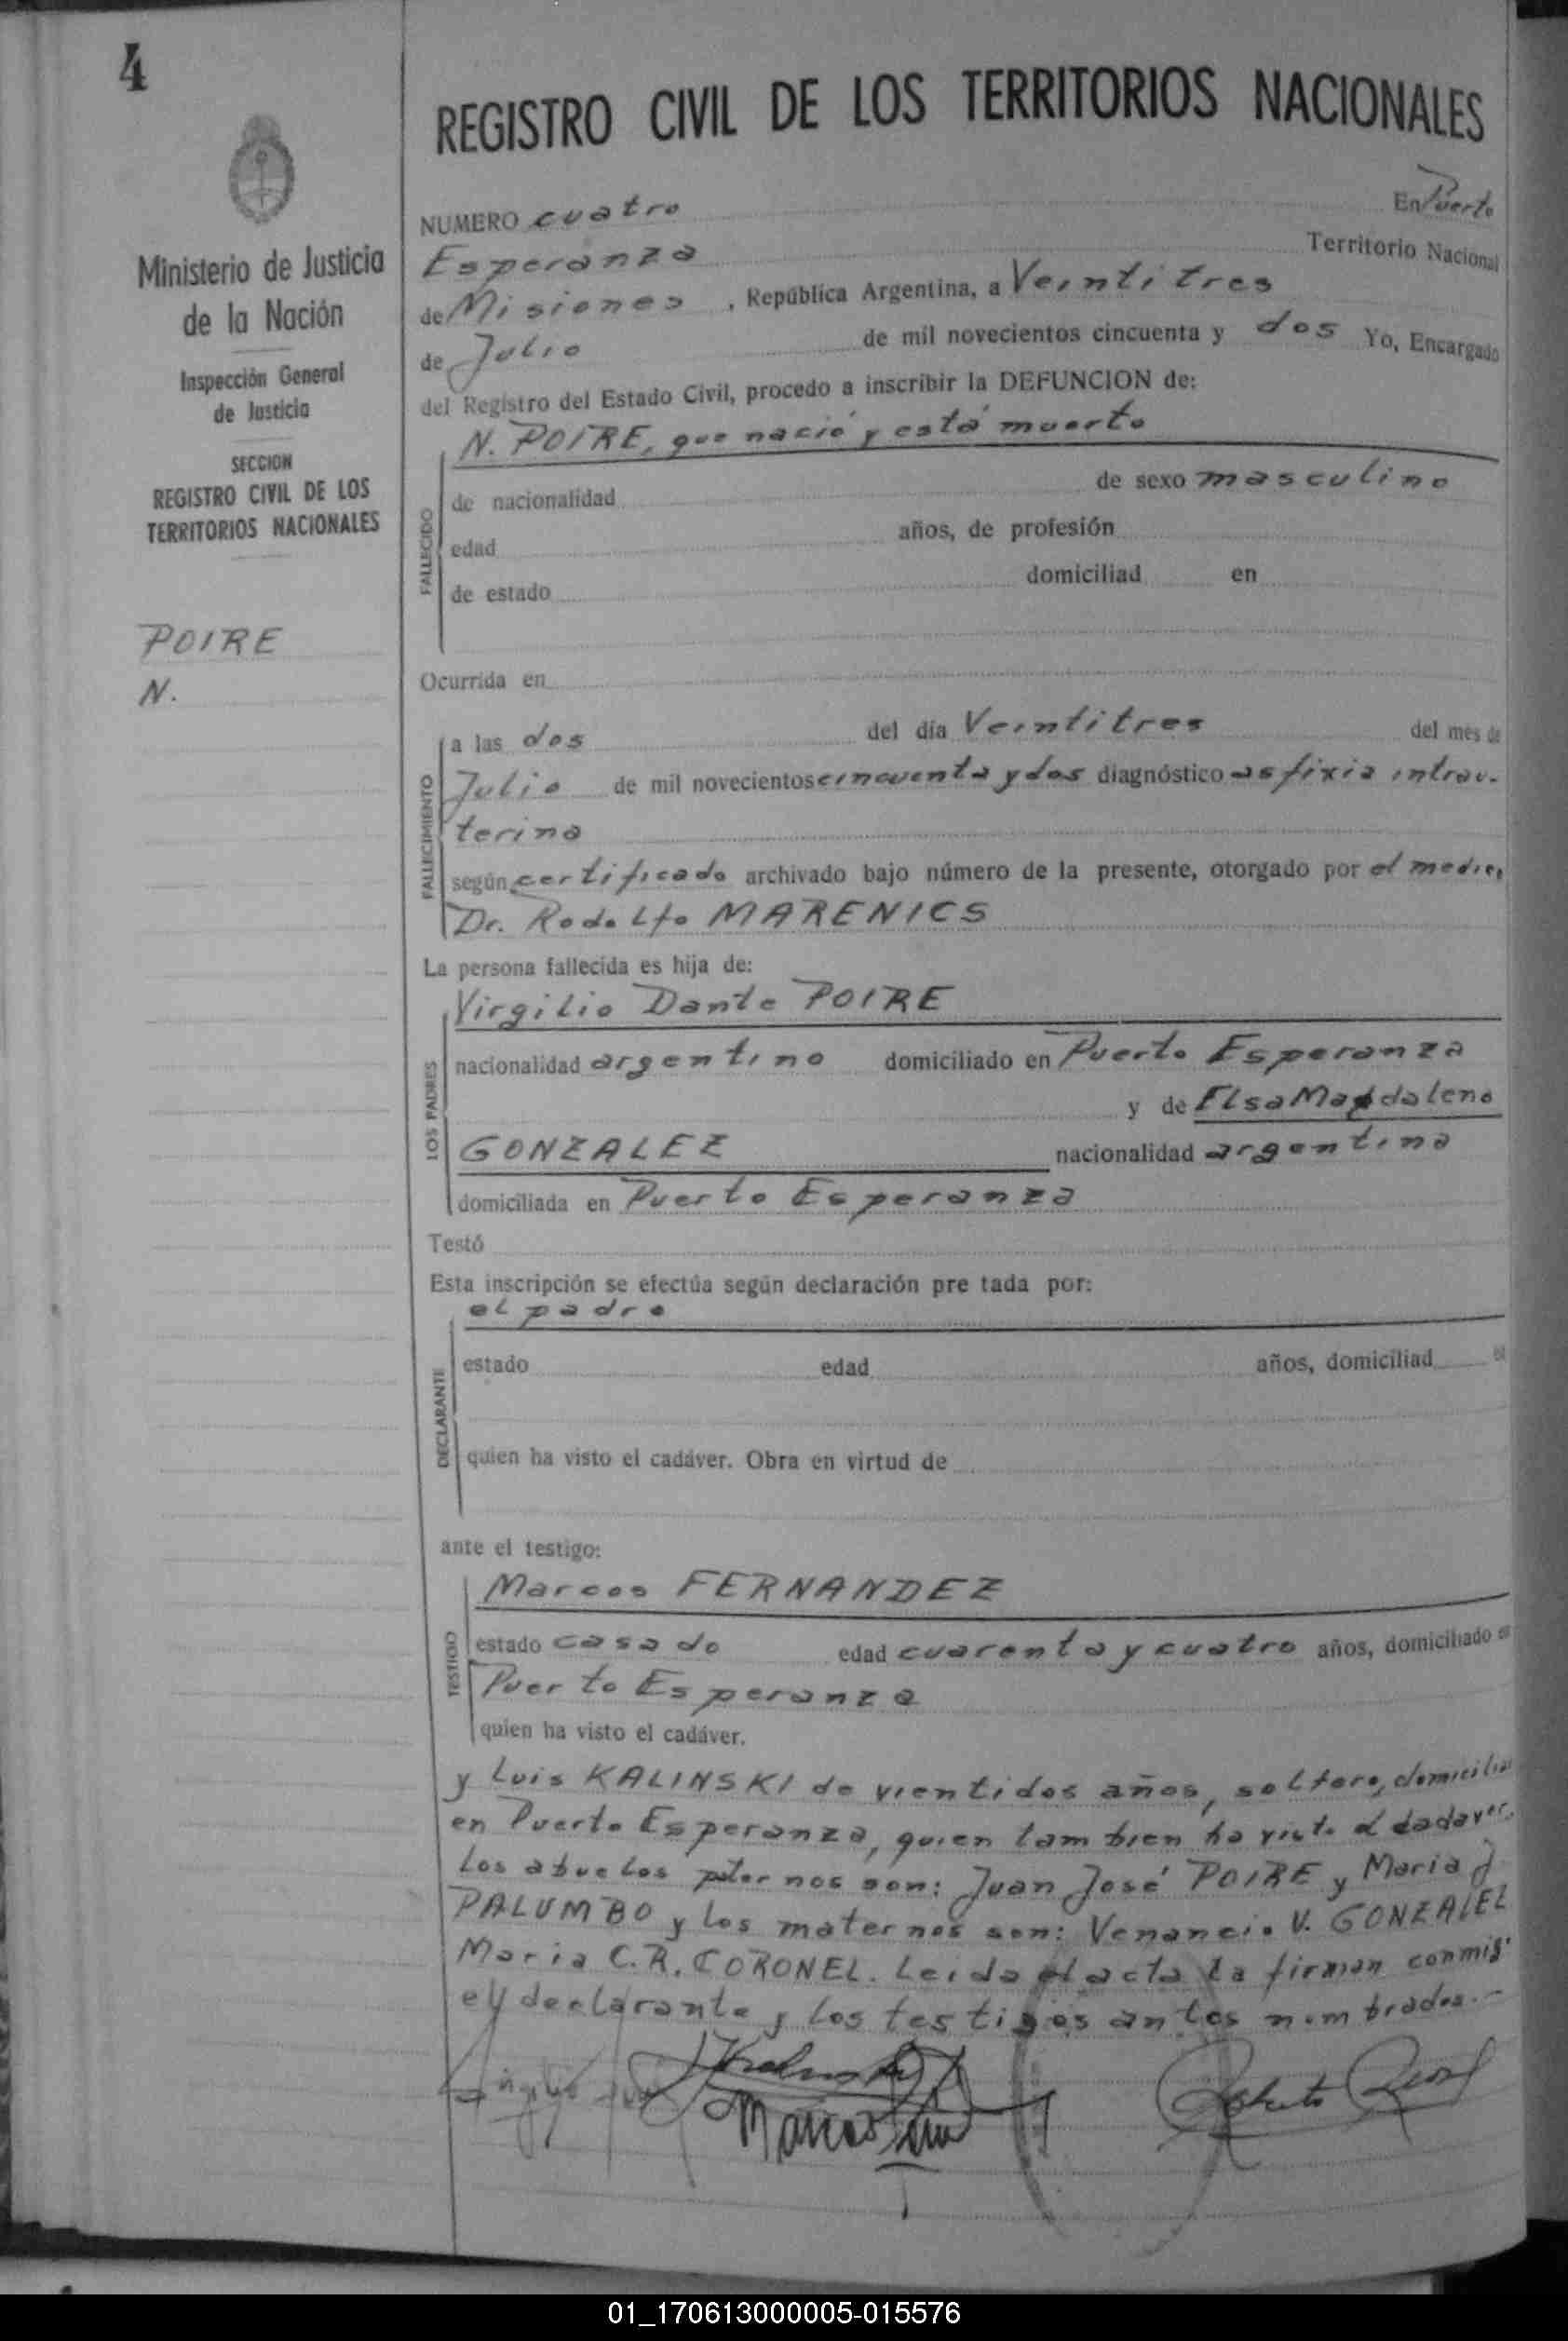 4
REGISTRO CIVIL DE LOS TERRITORIOS NACIONALES
Ministerio de Justicia
de la Nación
Inspección General
de Justicia
SECCION
REGISTRO CIVIL DE LOS
TERRITORIOS NACIONALES
POIRE
N.
NUMERO cuatro En Puerto
Esperanza Territorio Nacional
de Misiones, República Argentina, a Veintitres
de Julio de mil novecientos cincuenta y dos Yo, Encargado
del Registro del Estado Civil, procedo a inscribir la DEFUNCION de:
FALLECIDO
N. POIRE, que nació y está muerto
de nacionalidad de sexo masculino
edad años, de profesión
de estado domiciliad en
Ocurrida en
FALLECIMIENTO
a las dos del día Veintitres del mes de
Julio de mil novecientos cincuenta y dos diagnóstico asfixia intrau-
terina
según certificado archivado bajo número de la presente, otorgado por el medico
Dr. Rodolfo MARENICS
La persona fallecida es hija de:
LOS PADRES
Virgilio Dante POIRE
nacionalidad argentino domiciliado en Puerto Esperanza
y de Elsa Magdalena
GONZALEZ nacionalidad argentina
domiciliada en Puerto Esperanza
Testó
Esta inscripción se efectúa según declaración pre tada por:
DECLARANTE
el padre
estado edad años, domiciliad
quien ha visto el cadáver. Obra en virtud de
ante el testigo:
TESTIGO
Marcos FERNANDEZ
estado casado edad cuarenta y cuatro años, domiciliado en
Puerto Esperanza
quien ha visto el cadáver.
y Luis KALINSKI de vientidos años, soltero, domicilia
en Puerto Esperanza, quien tambien ha visto el cadaver.
Los abuelos paternos son: Juan José POIRE y Maria J
PALUMBO y los maternos son: Venancio V. GONZALEZ
Maria C.R. CORONEL. Leida el acta la firman conmig
el declarante y los testigos antes nombrados.-
Marcos
Roberto
01_170613000005-015576